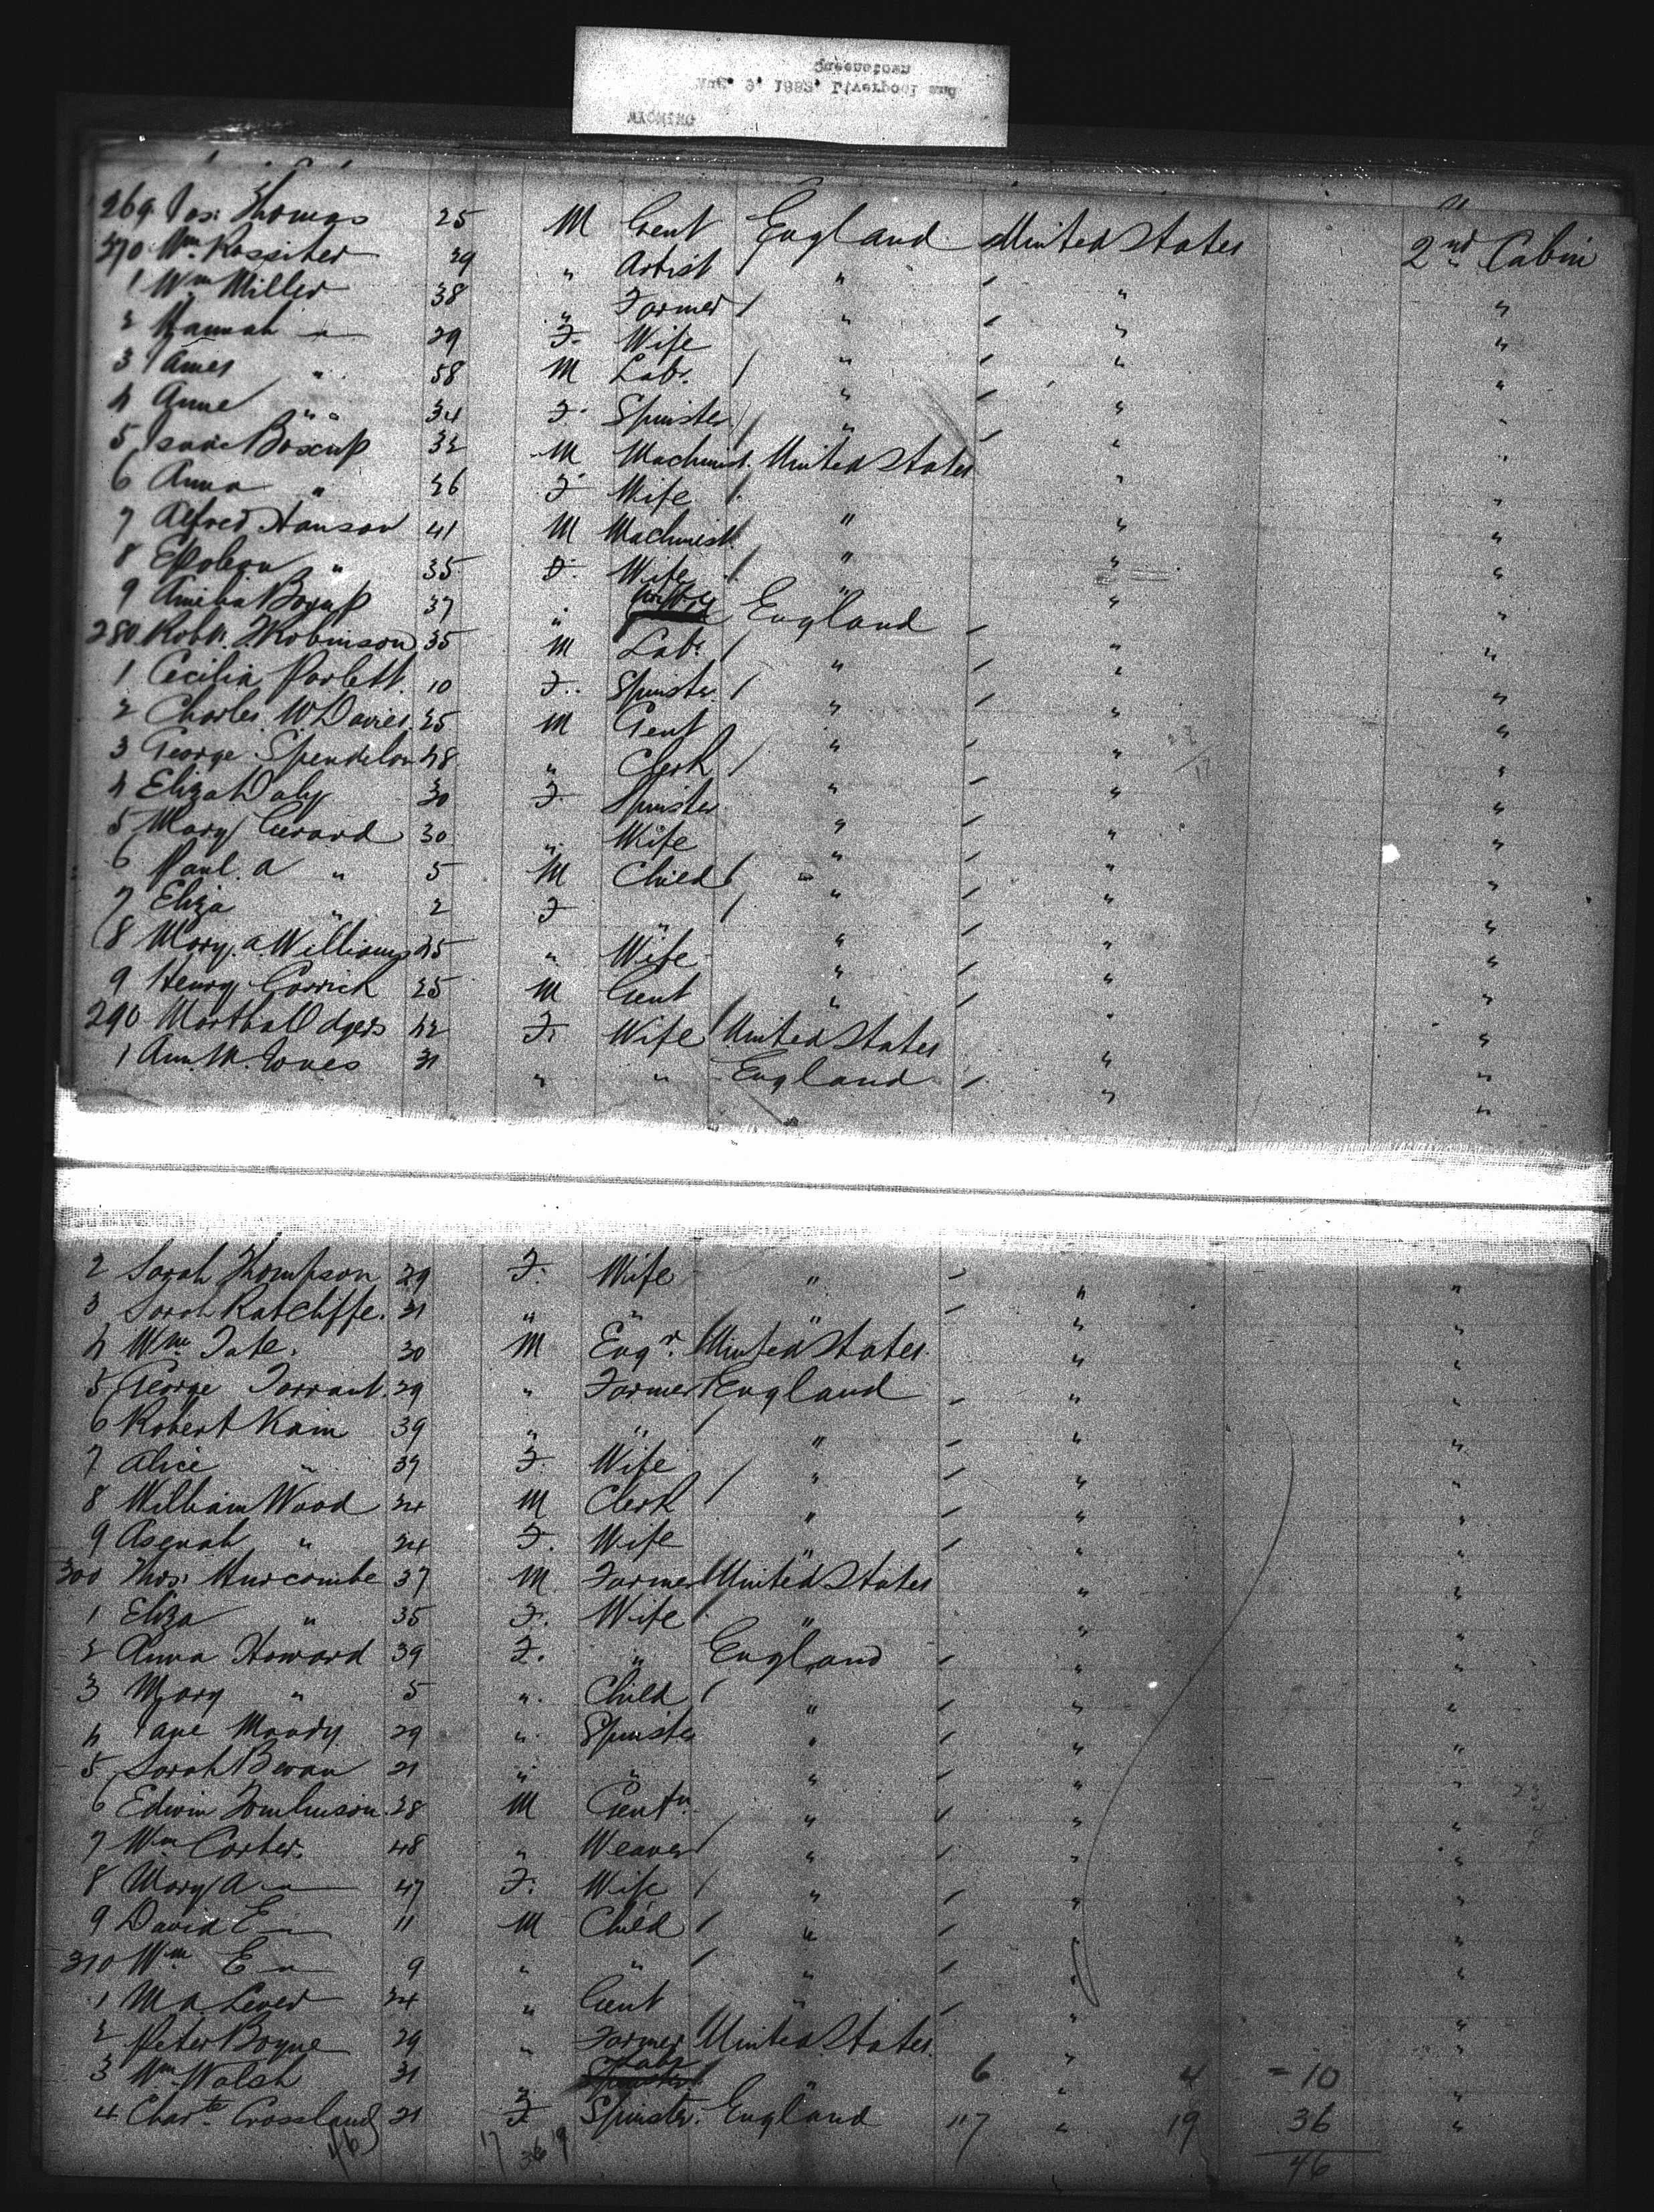 WYOMING
Aug. 9, 1882, Liverpool and
Queenstown
269 Jas. Thomas 25 M Gent England United States 2nd Cabin
270 Wm Rossiter 39 " Artist " " "
1 Wm Miller 38 " Farmer " " "
2 Hannah " 29 F Wife " " "
3 James " 58 M Labr. " " "
4 Anne " " 34 F Spinster " " "
5 Isaac Boxup 32 M Machinist United States " "
6 Anna " 26 F Wife " " "
7 Alfred Hanson 41 M Machinist " " "
8 " 35 F Wife " " "
9 Amelia 37 " England " "
280 Robt. J. Robinson 35 M Labr. " " "
1 Cecilia Parlett 10 F Spinster " " "
2 Charles W Davies 25 M Gent " " "
3 George Spendelow 48 " Clerk " " "
4 Eliza Daly 30 F Spinster " " "
5 Mary Gerard 30 " Wife " " "
6 Paul. A " 5 M Child " " "
7 Eliza " 2 F " " " "
8 Mary. A. Williams 45 " Wife " " "
9 Henry Carrick 25 M Gent " " "
290 Martha Odgers 42 F. Wife United States " "
1 Ann. M. Jones 31 " " England " "
2 Sarah Thompson 29 F. Wife " " "
3 Sarah Ratcliffe. 31 " " " " "
4 Wm Tate. 30 M Engr. United States " "
5 George Tarrant 29 " Farmer England " "
6 Robert Kain 39 " " " " "
7 Alice " 37 F. Wife " " "
8 William Wood 24 M Clerk " " "
9 Asenah " 24 F. Wife " " "
300 Thos. Huxcombe 37 M Farmer United States " "
1 Eliza " 35 F. Wife " " "
2 Anna Howard 39 F. " England " "
3 Mary " 5 ". Child " " "
4 Jane Moody 29 " Spinster " " "
5 Sarah Bevan 21 " " " " "
6 Edwin Tomlinson 28 M Gentn " " "
7 Wm Carter. 48 " Weaver " " "
8 Mary A " 47 F. Wife " " "
9 David E " 11 M Child " " "
310 Wm E " 9 " " " " "
1 M A. Lever 24 " Gent " " "
2 Peter Boyne 29 " Farmer United States. " "
3 Wm Walsh 31 " Labr " 6 " 4 = 10 "
4 Charte Crossland 21 F Spinstr. England 117 " 19 36 "
46 17 36 9 46